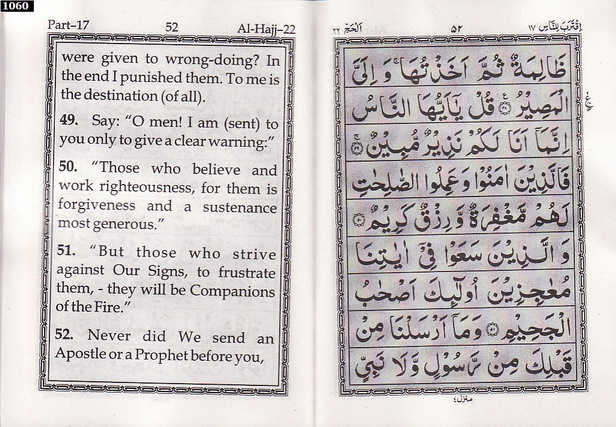 1060
Part-17 52 Al-Hajj-22
were given to wrong-doing? In
the end I punished them. To me is
the destination (of all).
49. Say: "O men! I am (sent) to
you only to give a clear warning:"
50. "Those who believe and
work righteousness, for them is
forgiveness and a sustenance
most generous."
51. "But those who strive
against Our Signs, to frustrate
them, - they will be Companions
of the Fire."
52. Never did We send an
Apostle or a Prophet before you,
اِقْتَرَبَ لِلنَّاسِ ١٧ ٥٢ اَلْحَجّ ٢٢
ظَالِمَةٌ ثُمَّ اَخَذْتُهَا ۚ وَ اِلَیَّ
الْمَصِیْرُ ۝٤٨ قُلْ یٰۤاَیُّهَا النَّاسُ
اِنَّمَاۤ اَنَا لَكُمْ نَذِیْرٌ مُّبِیْنٌ ۝٤٩
فَالَّذِیْنَ اٰمَنُوْا وَعَمِلُوا الصّٰلِحٰتِ
لَهُمْ مَّغْفِرَةٌ وَّ رِزْقٌ كَرِیْمٌ ۝٥٠
وَ الَّذِیْنَ سَعَوْا فِیْۤ اٰیٰتِنَا
مُعٰجِزِیْنَ اُولٰٓىِٕكَ اَصْحٰبُ
الْجَحِیْمِ ۝٥١ وَمَاۤ اَرْسَلْنَا مِنْ
قَبْلِكَ مِنْ رَّسُوْلٍ وَّلَا نَبِیٍّ
منزل ٤